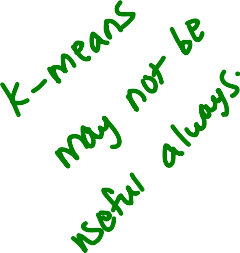 K-means
may not be
useful always.